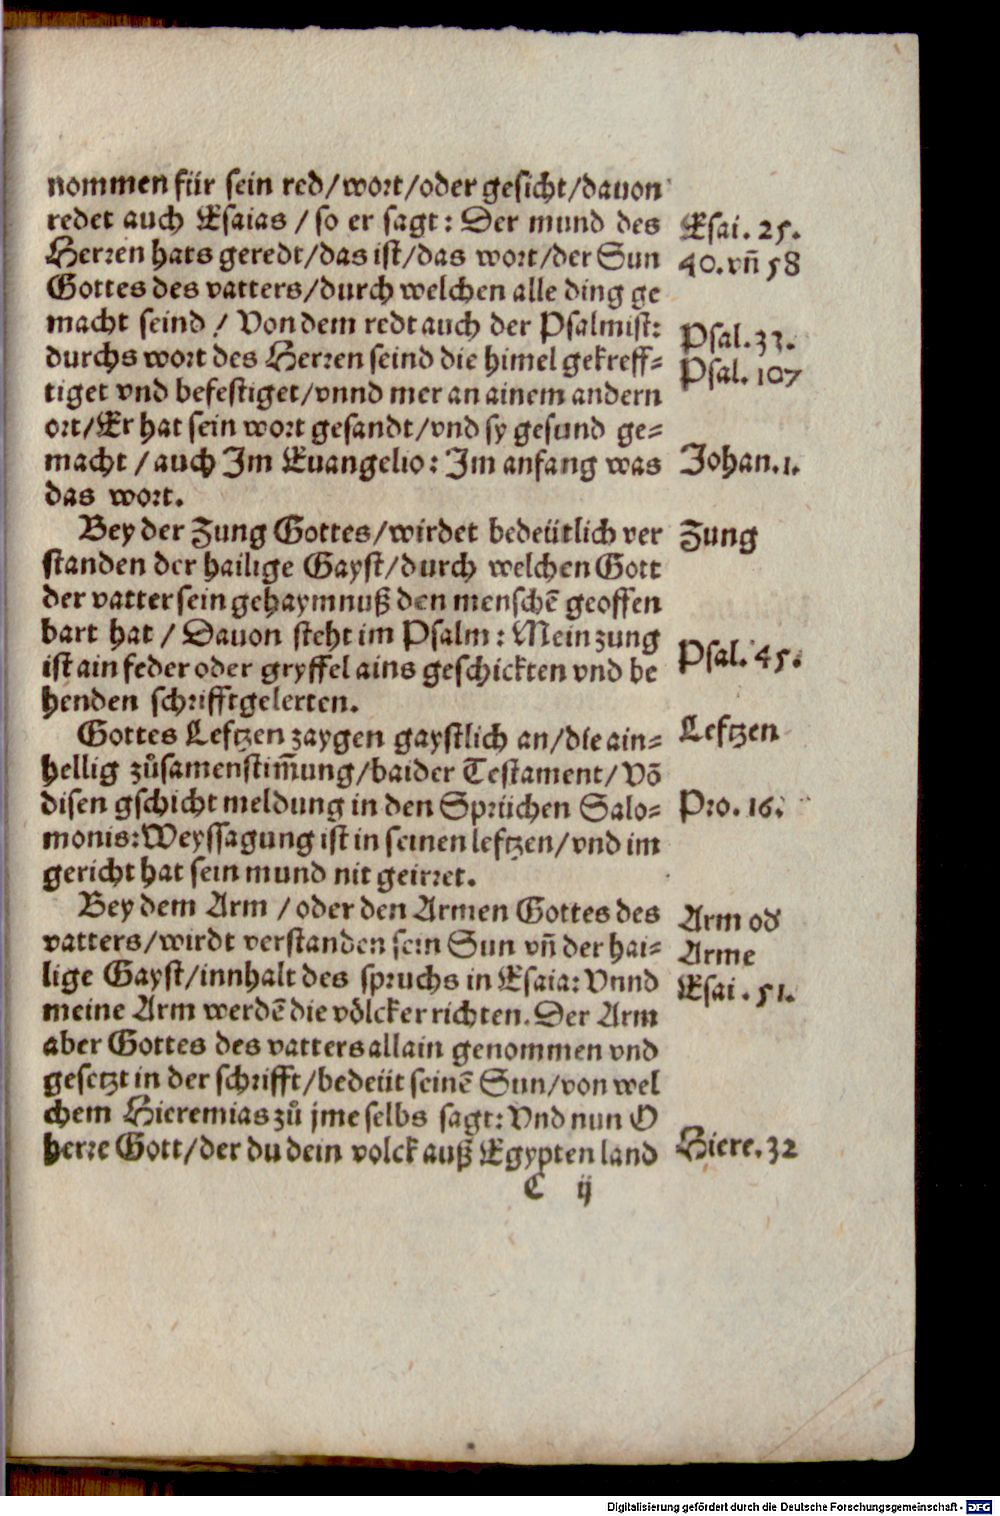 nommen für sein red/wort/oder gesicht/dauon
redet auch Esaias / so er sagt: Der mund des
Herren hats geredt/das ist/das wort/der Sun
Gottes des vatters/durch welchen alle ding ge
macht seind / Von dem redt auch der Psalmist:
durchs wort des Herren seind die himel gekreff-
tiget vnd befestiget/vnnd mer an ainem andern
ort/Er hat sein wort gesandt/vnd sy gesund ge-
macht / auch Im Euangelio: Im anfang was
das wort.
Esai. 25.
40. vn̄ 58
Psal. 33.
Psal. 107
Johan. 1.
Bey der Zung Gottes/wirdet bedeütlich ver
standen der hailige Gayst/durch welchen Gott
der vatter sein gehaymnuß den menschē geoffen
bart hat / Dauon steht im Psalm: Mein zung
ist ain feder oder gryffel ains geschickten vnd be
henden schrifftgelerten.
Zung
Psal. 45.
Gottes Leftzen zaygen gaystlich an/die ain-
hellig zůsamenstim̄ung/baider Testament/Vō
disen gschicht meldung in den Sprüchen Salo-
monis: Weyssagung ist in seinen leftzen/vnd im
gericht hat sein mund nit geirret.
Leftzen
Pro. 16.
Bey dem Arm / oder den Armen Gottes des
vatters/wirdt verstanden sein Sun vn̄ der hai-
lige Gayst/innhalt des spruchs in Esaia: Vnnd
meine Arm werdē die völcker richten. Der Arm
aber Gottes des vatters allain genommen vnd
gesetzt in der schrifft/bedeüt seinē Sun/von wel
chem Hieremias zů jme selbs sagt: Vnd nun O
herre Gott/der du dein volck auß Egypten land
Arm od
Arme
Esai. 51.
Hiere. 32
C ij
Digitalisierung gefördert durch die Deutsche Forschungsgemeinschaft - DFG